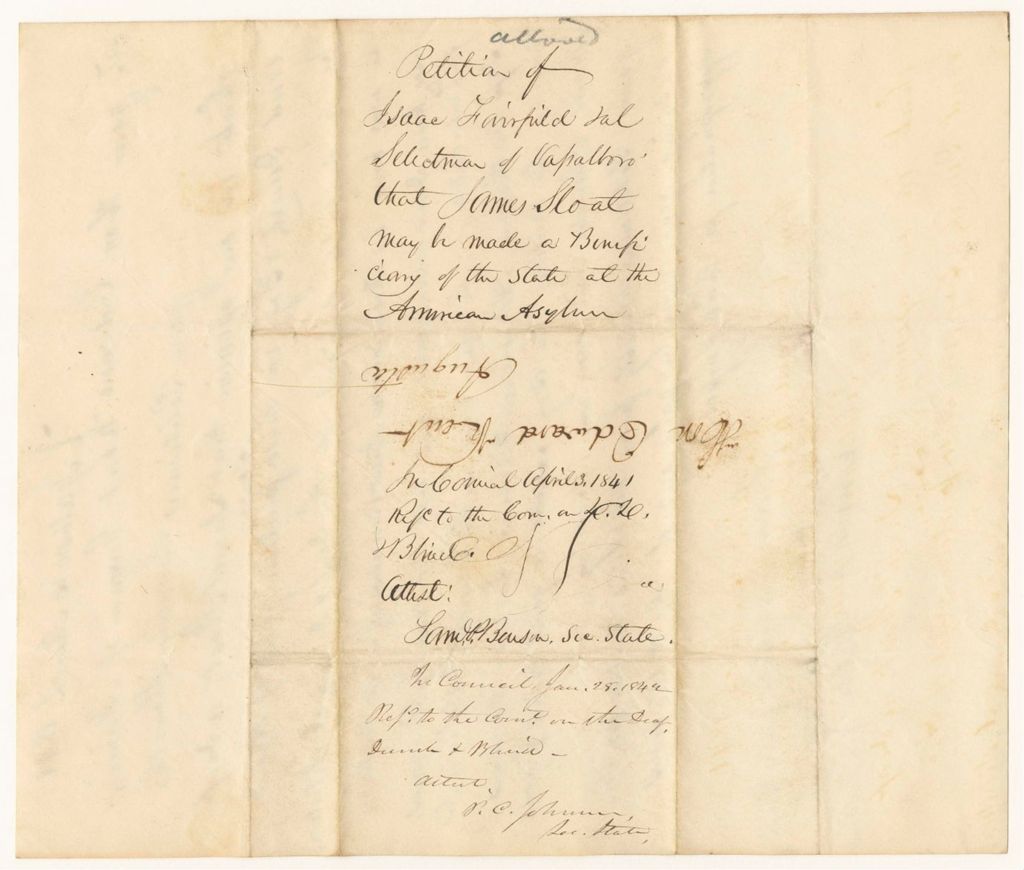 allowed
Petition of
Isaac Fairfield &al
Selectman of Vassalboro'
that James Sloat
may be made a Benefi
ciary of the State at the
American Asylum
Augusta
Hon Edward Kent
In Council April 3. 1841
Refd to the Com. on D. D.
& Blind.
Attest:
Saml. P. Benson. Sec. State.
In Council, Jan. 28. 1842
Refd. to the Comt. on the Deaf,
Dumb & Blind -
Attest.
P. C. Johnson,
Sec. State,